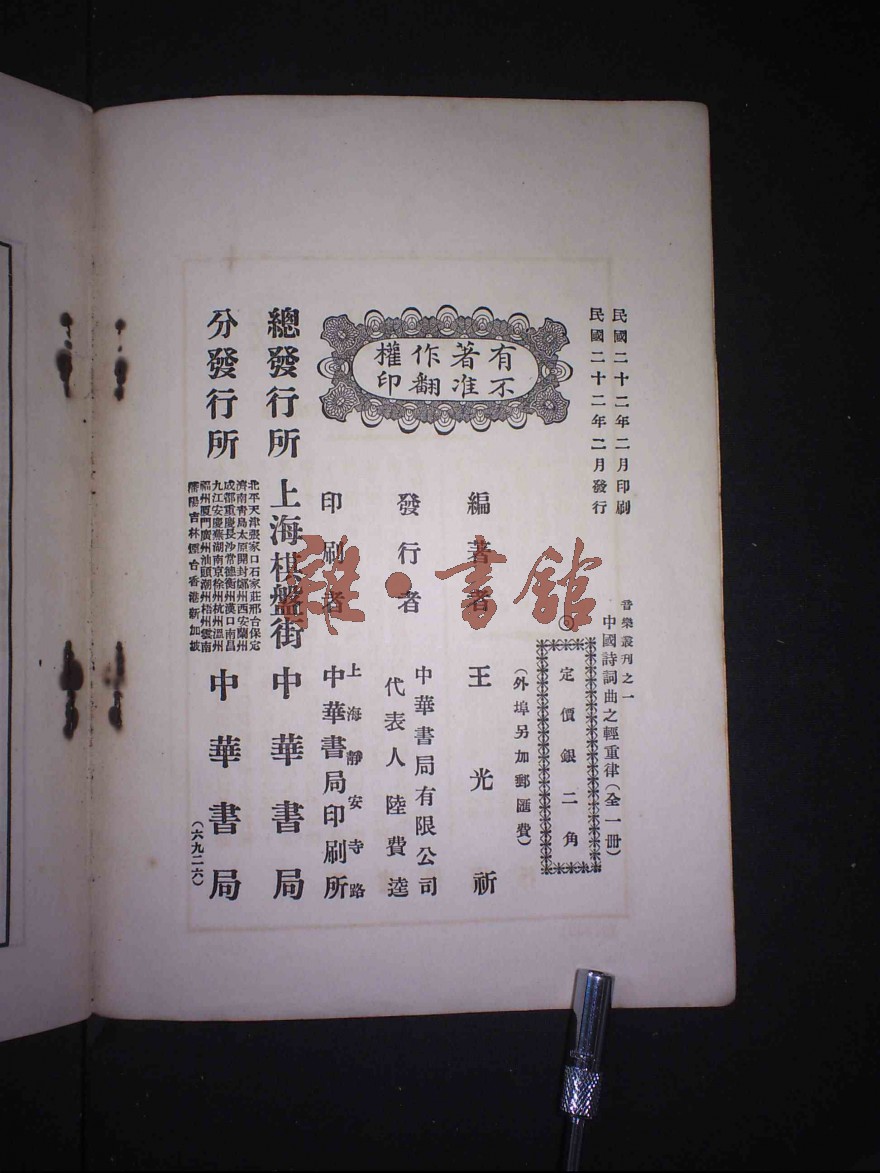 民國二十二年二月印刷
民國二十二年二月發行
音樂叢刊之一
中國詩詞曲之輕重律(全一册)
定價銀二角
(外埠另加郵匯費)
有不
著准
作翻
權印
編著者 王光祈
發行者 中華書局有限公司
代表人 陸費逵
印刷者 上海靜安寺路
中華書局印刷所
總發行所 上海棋盤街 中華書局
分發行所
北平天津張家口石家莊邢台保定
濟南青島太原開封鄭州西安蘭州
成都重慶長沙常德衡州漢口南昌
九江安慶蕪湖南京徐州杭州溫州
福州厦門廣州汕頭潮州梧州雲南
瀋陽吉林煙台香港新加坡
中華書局
(六九二六)
雜·書館